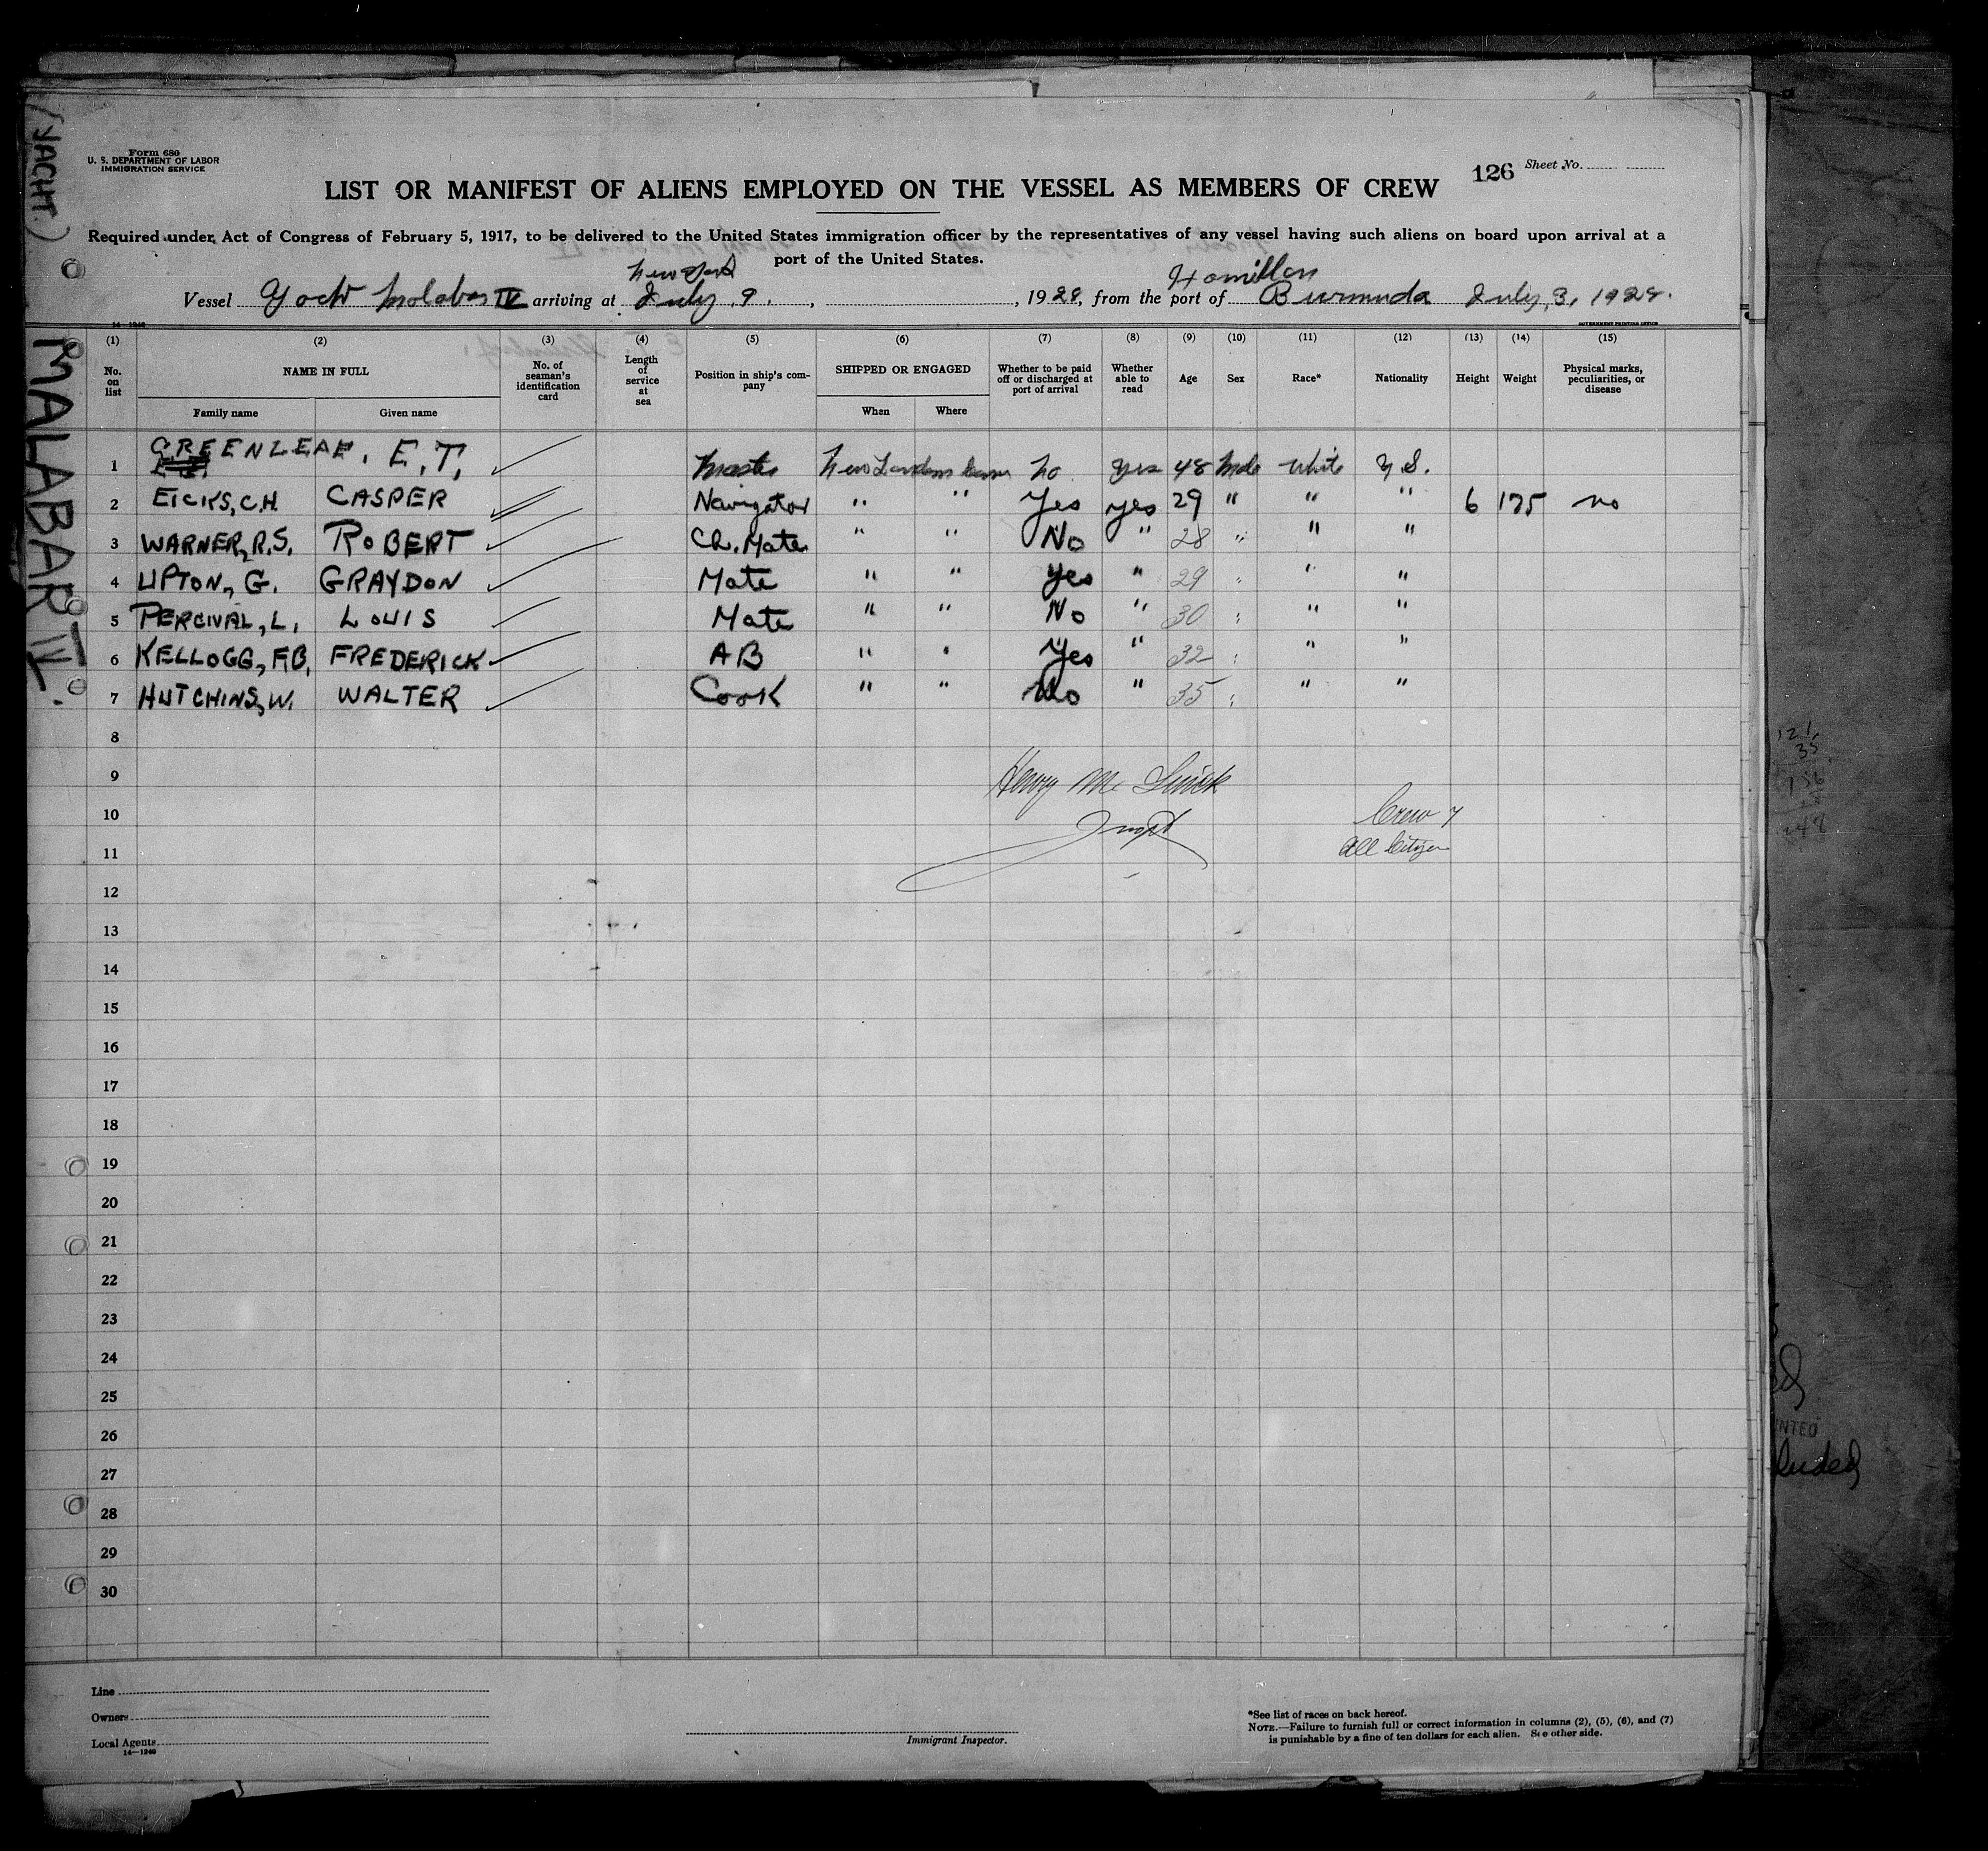 (YACHT.)
MALABAR IV.
Form 680
U. S. DEPARTMENT OF LABOR
IMMIGRATION SERVICE
126 Sheet No.
LIST OR MANIFEST OF ALIENS EMPLOYED ON THE VESSEL AS MEMBERS OF CREW
Required under Act of Congress of February 5, 1917, to be delivered to the United States immigration officer by the representatives of any vessel having such aliens on board upon arrival at a
port of the United States.
New York Hamilton
Vessel Yacht Malabar IV arriving at July 9, 1928, from the port of Bermuda July 3, 1928.
14—1240 GOVERNMENT PRINTING OFFICE
(1) (2) (3) (4) (5) (6) (7) (8) (9) (10) (11) (12) (13) (14) (15)
No. on list NAME IN FULL No. of seaman's identification card Length of service at sea Position in ship's company SHIPPED OR ENGAGED Whether to be paid off or discharged at port of arrival Whether able to read Age Sex Race* Nationality Height Weight Physical marks, peculiarities, or disease
Family name Given name When Where
1 GREENLEAF, E.T. Master New London Conn No Yes 48 Male White U.S.
2 EICKS, C.H. CASPER Navigator " " Yes yes 29 " " " 6 175 no
3 WARNER, R.S. ROBERT Ch. Mate " " No " 28 " " "
4 UPTON, G. GRAYDON Mate " " Yes " 29 " " "
5 PERCIVAL, L. LOUIS Mate " " No " 30 " " "
6 KELLOGG, F.B. FREDERICK AB " " Yes " 32 " " "
7 HUTCHINS, W. WALTER Cook " " No " 35 " " "
8
9 Henry Mc
10 Inspt Crew 7
11 All Citizen
12
13
14
15
16
17
18
19
20
21
22
23
24
25
26
27
28
29
30
Line
Owners
Local Agents
14—1240
Immigrant Inspector.
*See list of races on back hereof.
NOTE.—Failure to furnish full or correct information in columns (2), (5), (6), and (7)
is punishable by a fine of ten dollars for each alien. See other side.
121
35
156
248
NTED
luded